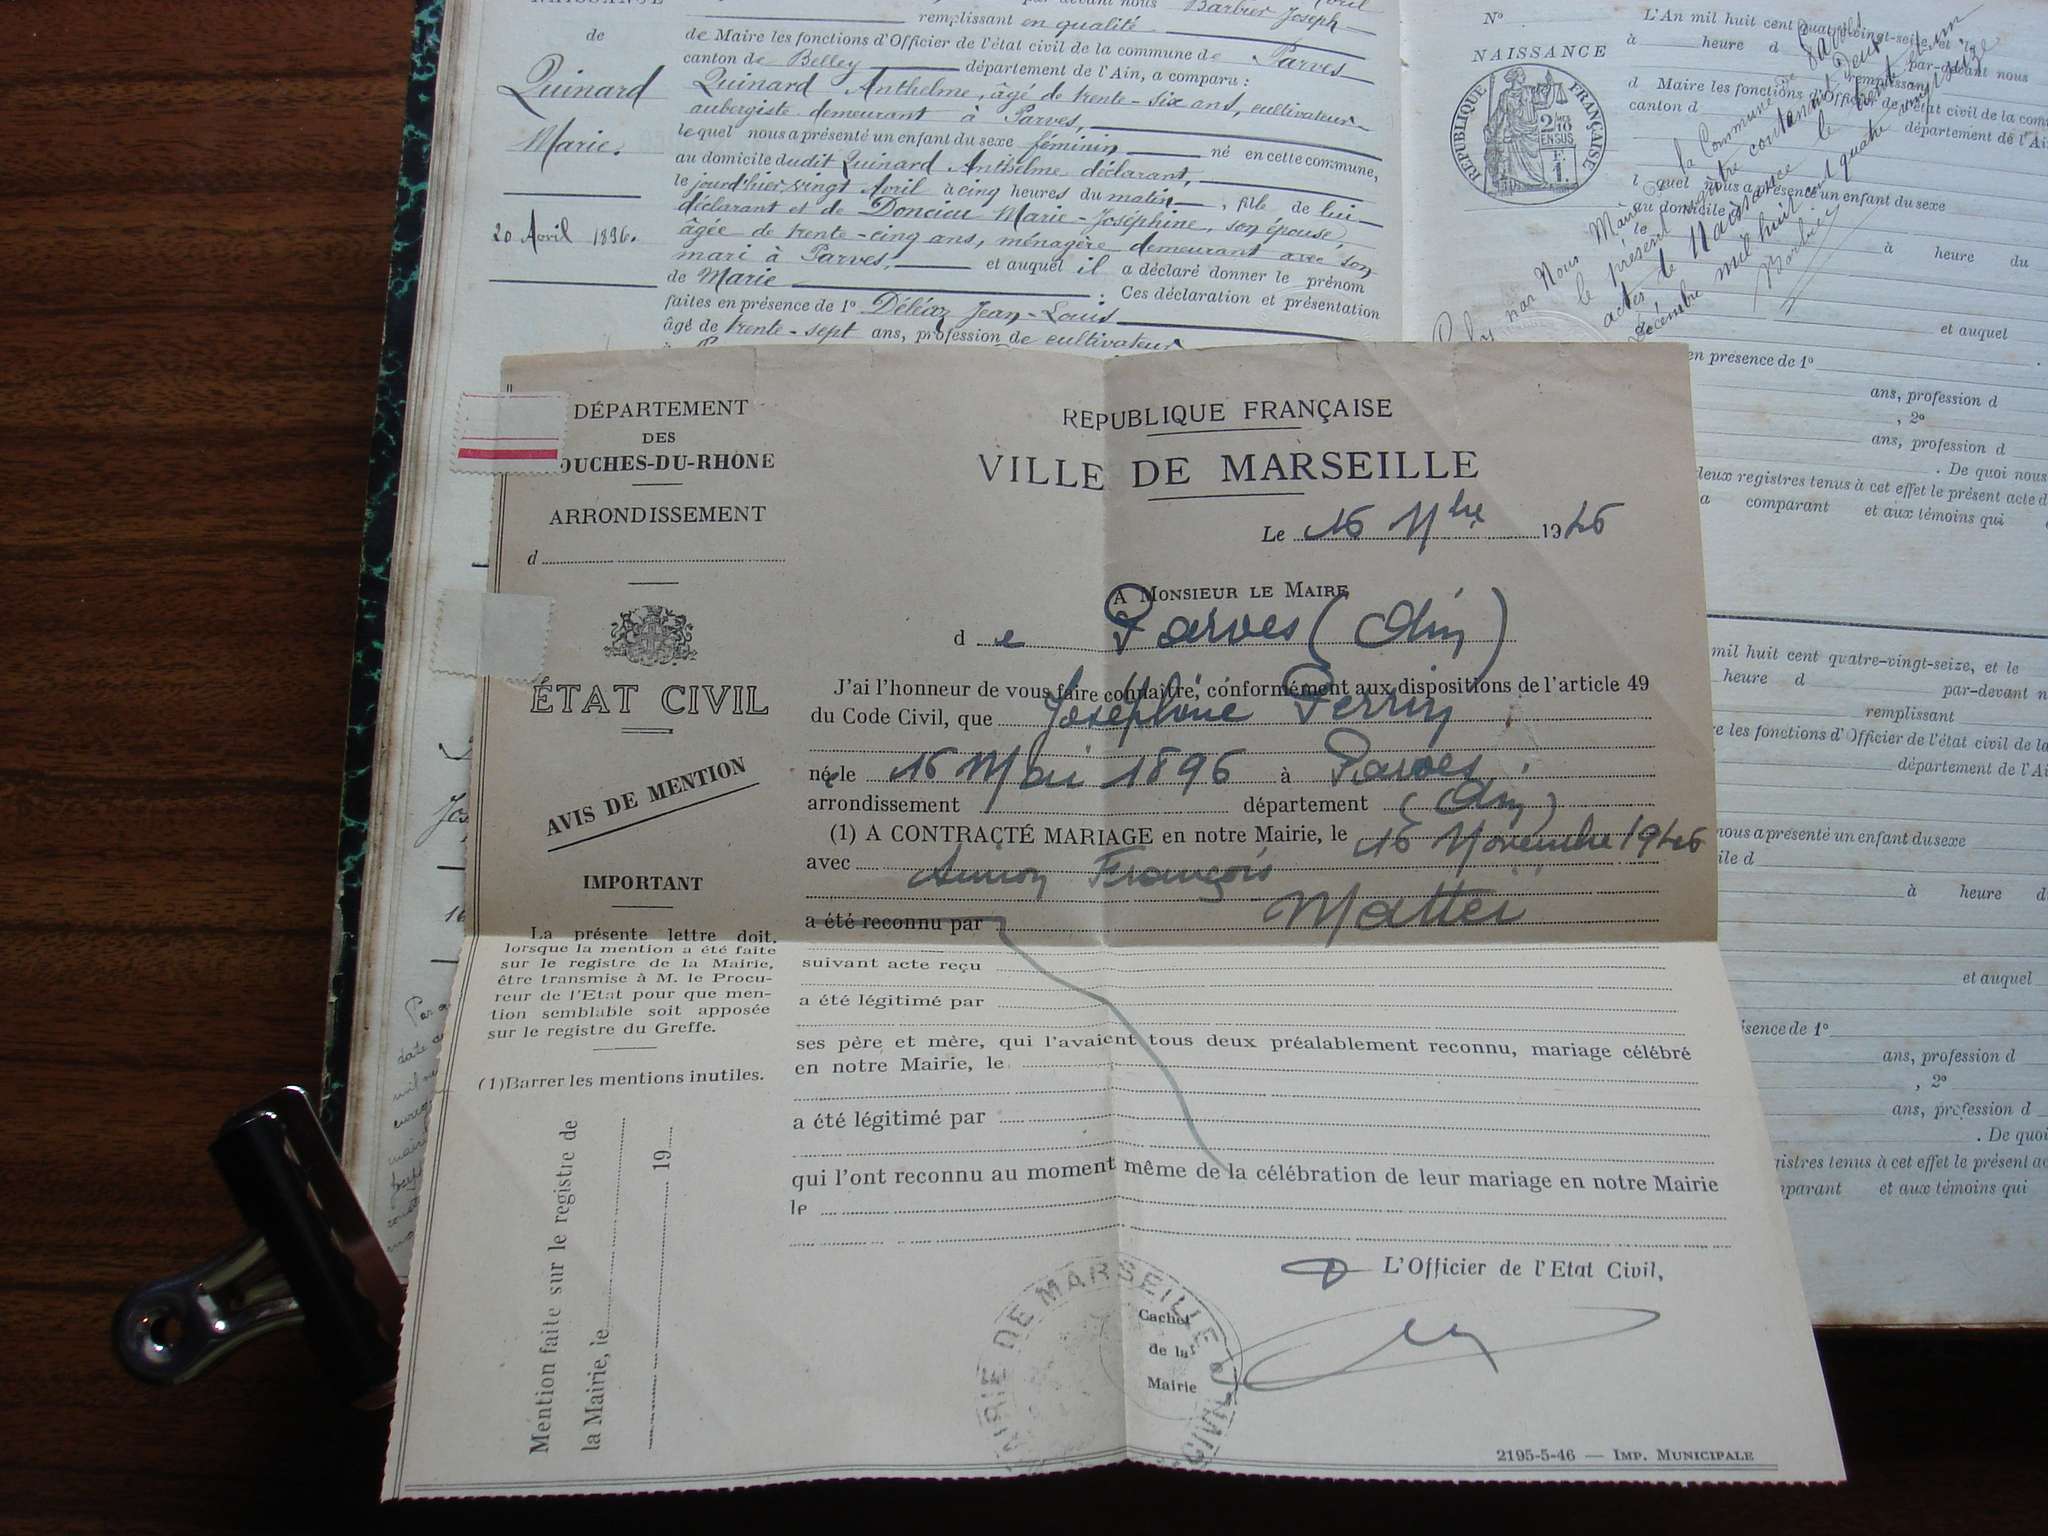 NAISSANCE
de
Quinard
Marie.
20 Avril 1896.
par devant nous Barbier Joseph
remplissant en qualité
de Maire les fonctions d'Officier de l'état civil de la commune de Parves
canton de Belley département de l'Ain, a comparu :
Quinard Anthelme, âgé de trente-six ans, cultivateur
aubergiste demeurant à Parves,
lequel nous a présenté un enfant du sexe féminin né en cette commune,
au domicile dudit Quinard Anthelme déclarant,
le jourd'hier vingt Avril à cinq heures du matin, fille de lui
déclarant et de Doncieu Marie-Joséphine, son épouse,
âgée de trente-cinq ans, ménagère demeurant avec son
mari à Parves, et auquel il a déclaré donner le prénom
de Marie : Ces déclaration et présentation
faites en présence de 1° Déléaz Jean-Louis
âgé de trente-sept ans, profession de cultivateur
N°
NAISSANCE
RÉPUBLIQUE FRANÇAISE
2 DMES 10
EN SUS
L'An mil huit cent quatre-vingt-seize, et le
à heure d par-devant nous
remplissant
d Maire les fonctions d'Officier de l'état civil de la com
canton d département de l'Ai
l quel nous a présenté un enfant du sexe
au domicile d
le à heure du
et auquel
en présence de 1°
ans, profession d
, 2°
ans, profession d
. De quoi nous
deux registres tenus à cet effet le présent acte d
a comparant et aux témoins qui
par Nous Maire la Commune de
le présent registre contenant
actes de Naissance le trente et un
décembre mil huit cent quatre vingt seize
Barbier
DÉPARTEMENT
DES
OUCHES-DU-RHÔNE
ARRONDISSEMENT
d
ÉTAT CIVIL
AVIS DE MENTION
IMPORTANT
La présente lettre doit,
lorsque la mention a été faite
sur le registre de la Mairie,
être transmise à M. le Procu-
reur de l'Etat pour que men-
tion semblable soit apposée
sur le registre du Greffe.
(1) Barrer les mentions inutiles.
Mention faite sur le registre de
la Mairie, le
19
REPUBLIQUE FRANÇAISE
VILLE DE MARSEILLE
Le 16 Nbre 1946
A MONSIEUR LE MAIRE
de Parves (Ain)
J'ai l'honneur de vous faire connaitre, conformément aux dispositions de l'article 49
du Code Civil, que Joséphine Perrin
née le 16 Mai 1896 à Parves
arrondissement département (Ain)
(1) A CONTRACTÉ MARIAGE en notre Mairie, le 16 Novembre 1946
avec François
Mattei
a été reconnu par
suivant acte reçu
a été légitimé par
ses père et mère, qui l'avaient tous deux préalablement reconnu, mariage célébré
en notre Mairie, le
a été légitimé par
qui l'ont reconnu au moment même de la célébration de leur mariage en notre Mairie
le
L'Officier de l'Etat Civil,
MAIRIE DE MARSEILLE
Cachet
de la
Mairie
2195-5-46 — IMP. MUNICIPALE
mil huit cent quatre-vingt-seize, et le
heure d par-devant n
remplissant
e les fonctions d'Officier de l'état civil de la
département de l'Ai
nous a présenté un enfant du sexe
ile d
à heure d
et auquel
ésence de 1°
ans, profession d
, 2°
ans, profession d
. De quoi
gistres tenus à cet effet le présent ac
mparant et aux témoins qui